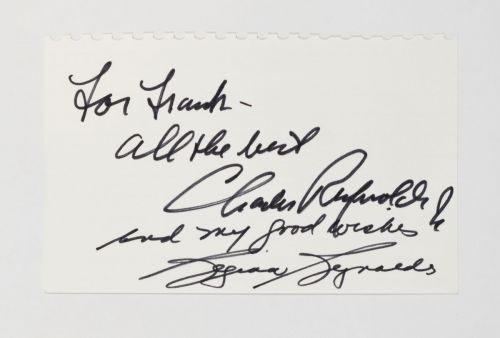 For Frank -
all the best
Charles Reynolds &
and my good wishes
Regina Reynolds